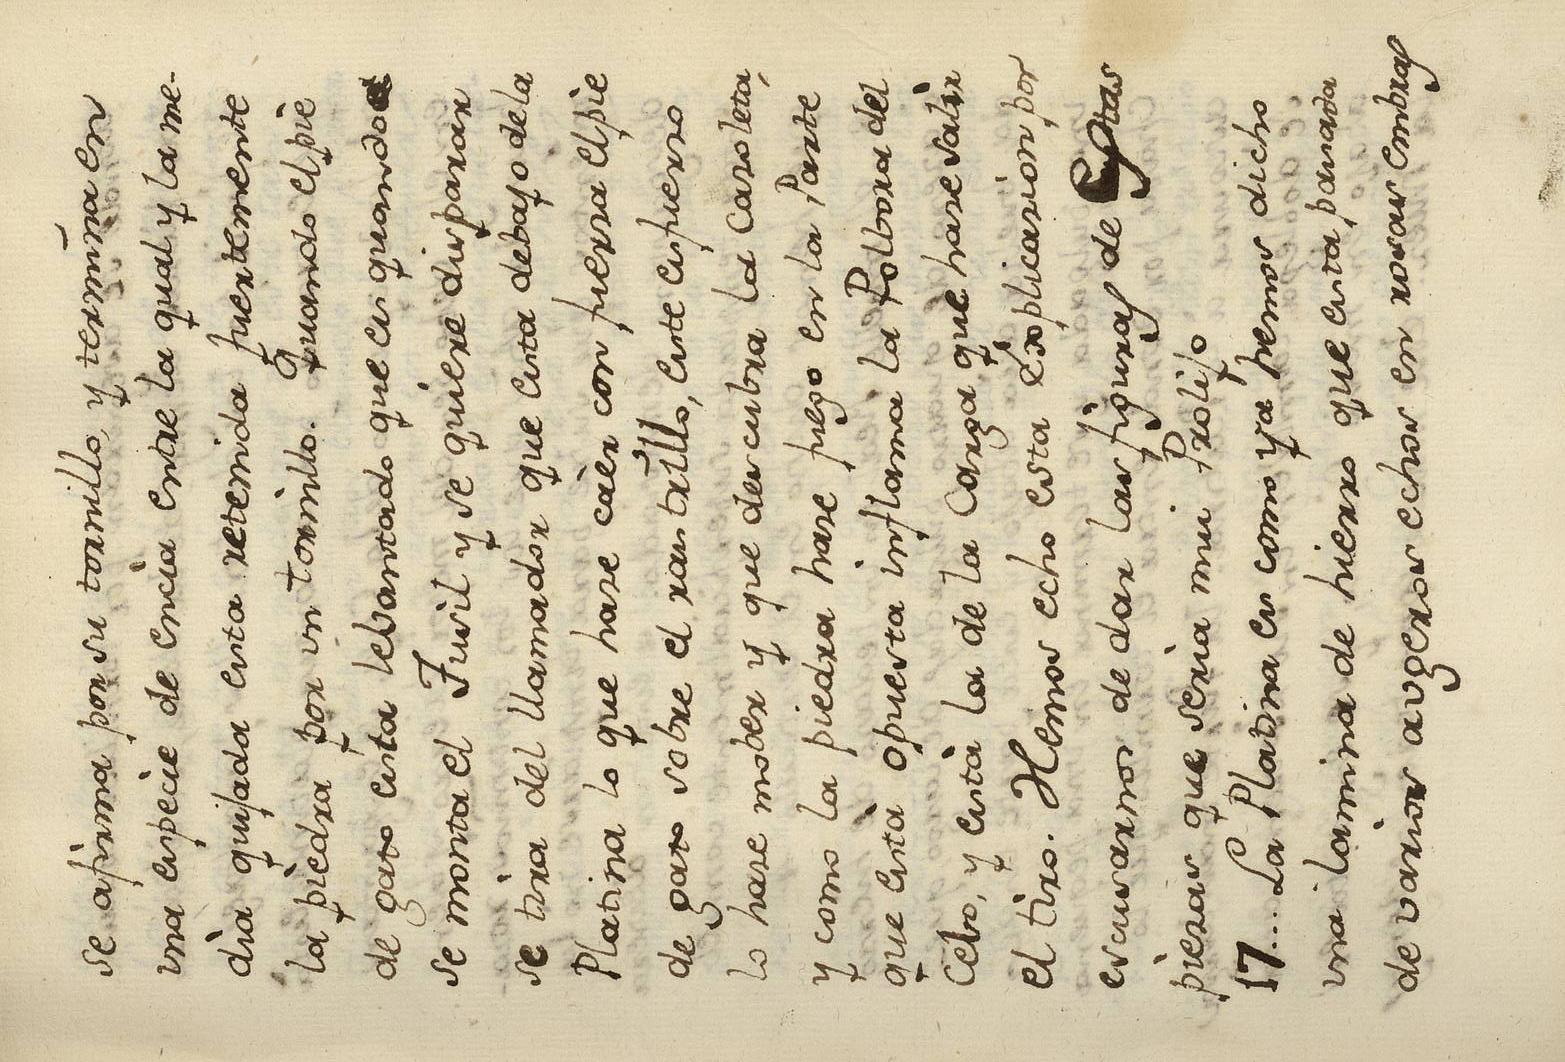 se afirma por su tornillo, y termina en
una especie de encia entre la qual y la me-
dia quijada esta retenida fuertemente
la piedra por un tornillo. Quando el pie
de gato esta lebantado que es quando
se monta el Fusil y se quiere disparar
se tira del llamador que esta debajo de la
Platina lo que hase caer con fuerza el pie
de gato sobre el rastrillo, este esfuerso
lo hase mober y que descubra la casoleta,
y como la piedra hase fuego en la Parte
que està opuesta inflama la Polbora del
Cebo, y està la de la Carga que hase salir
el tiro. Hemos echo esta Explicasion por
escusarnos de dar las figuras de Estas
piesas que seria mui Prolijo
17... La Platina es como ya hemos dicho
una lamina de hierro que esta pasada
de varios augeros echos en rosas embras